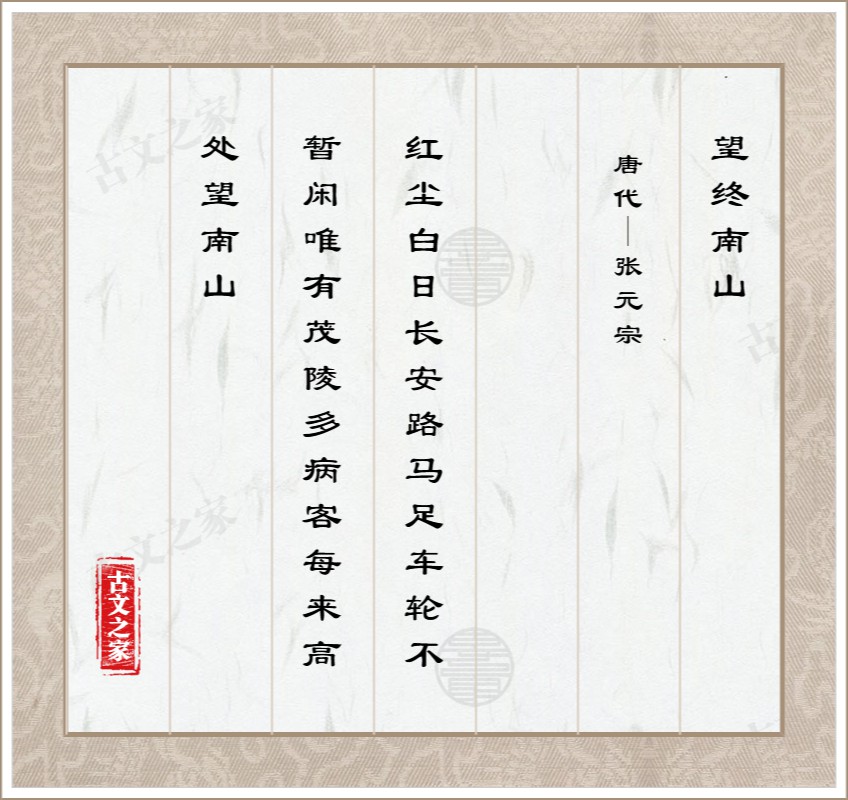 望终南山
唐代—张元宗
红尘白日长安路马足车轮不
暂闲唯有茂陵多病客每来高
处望南山
古文之家
古文之家
古文之家
古文